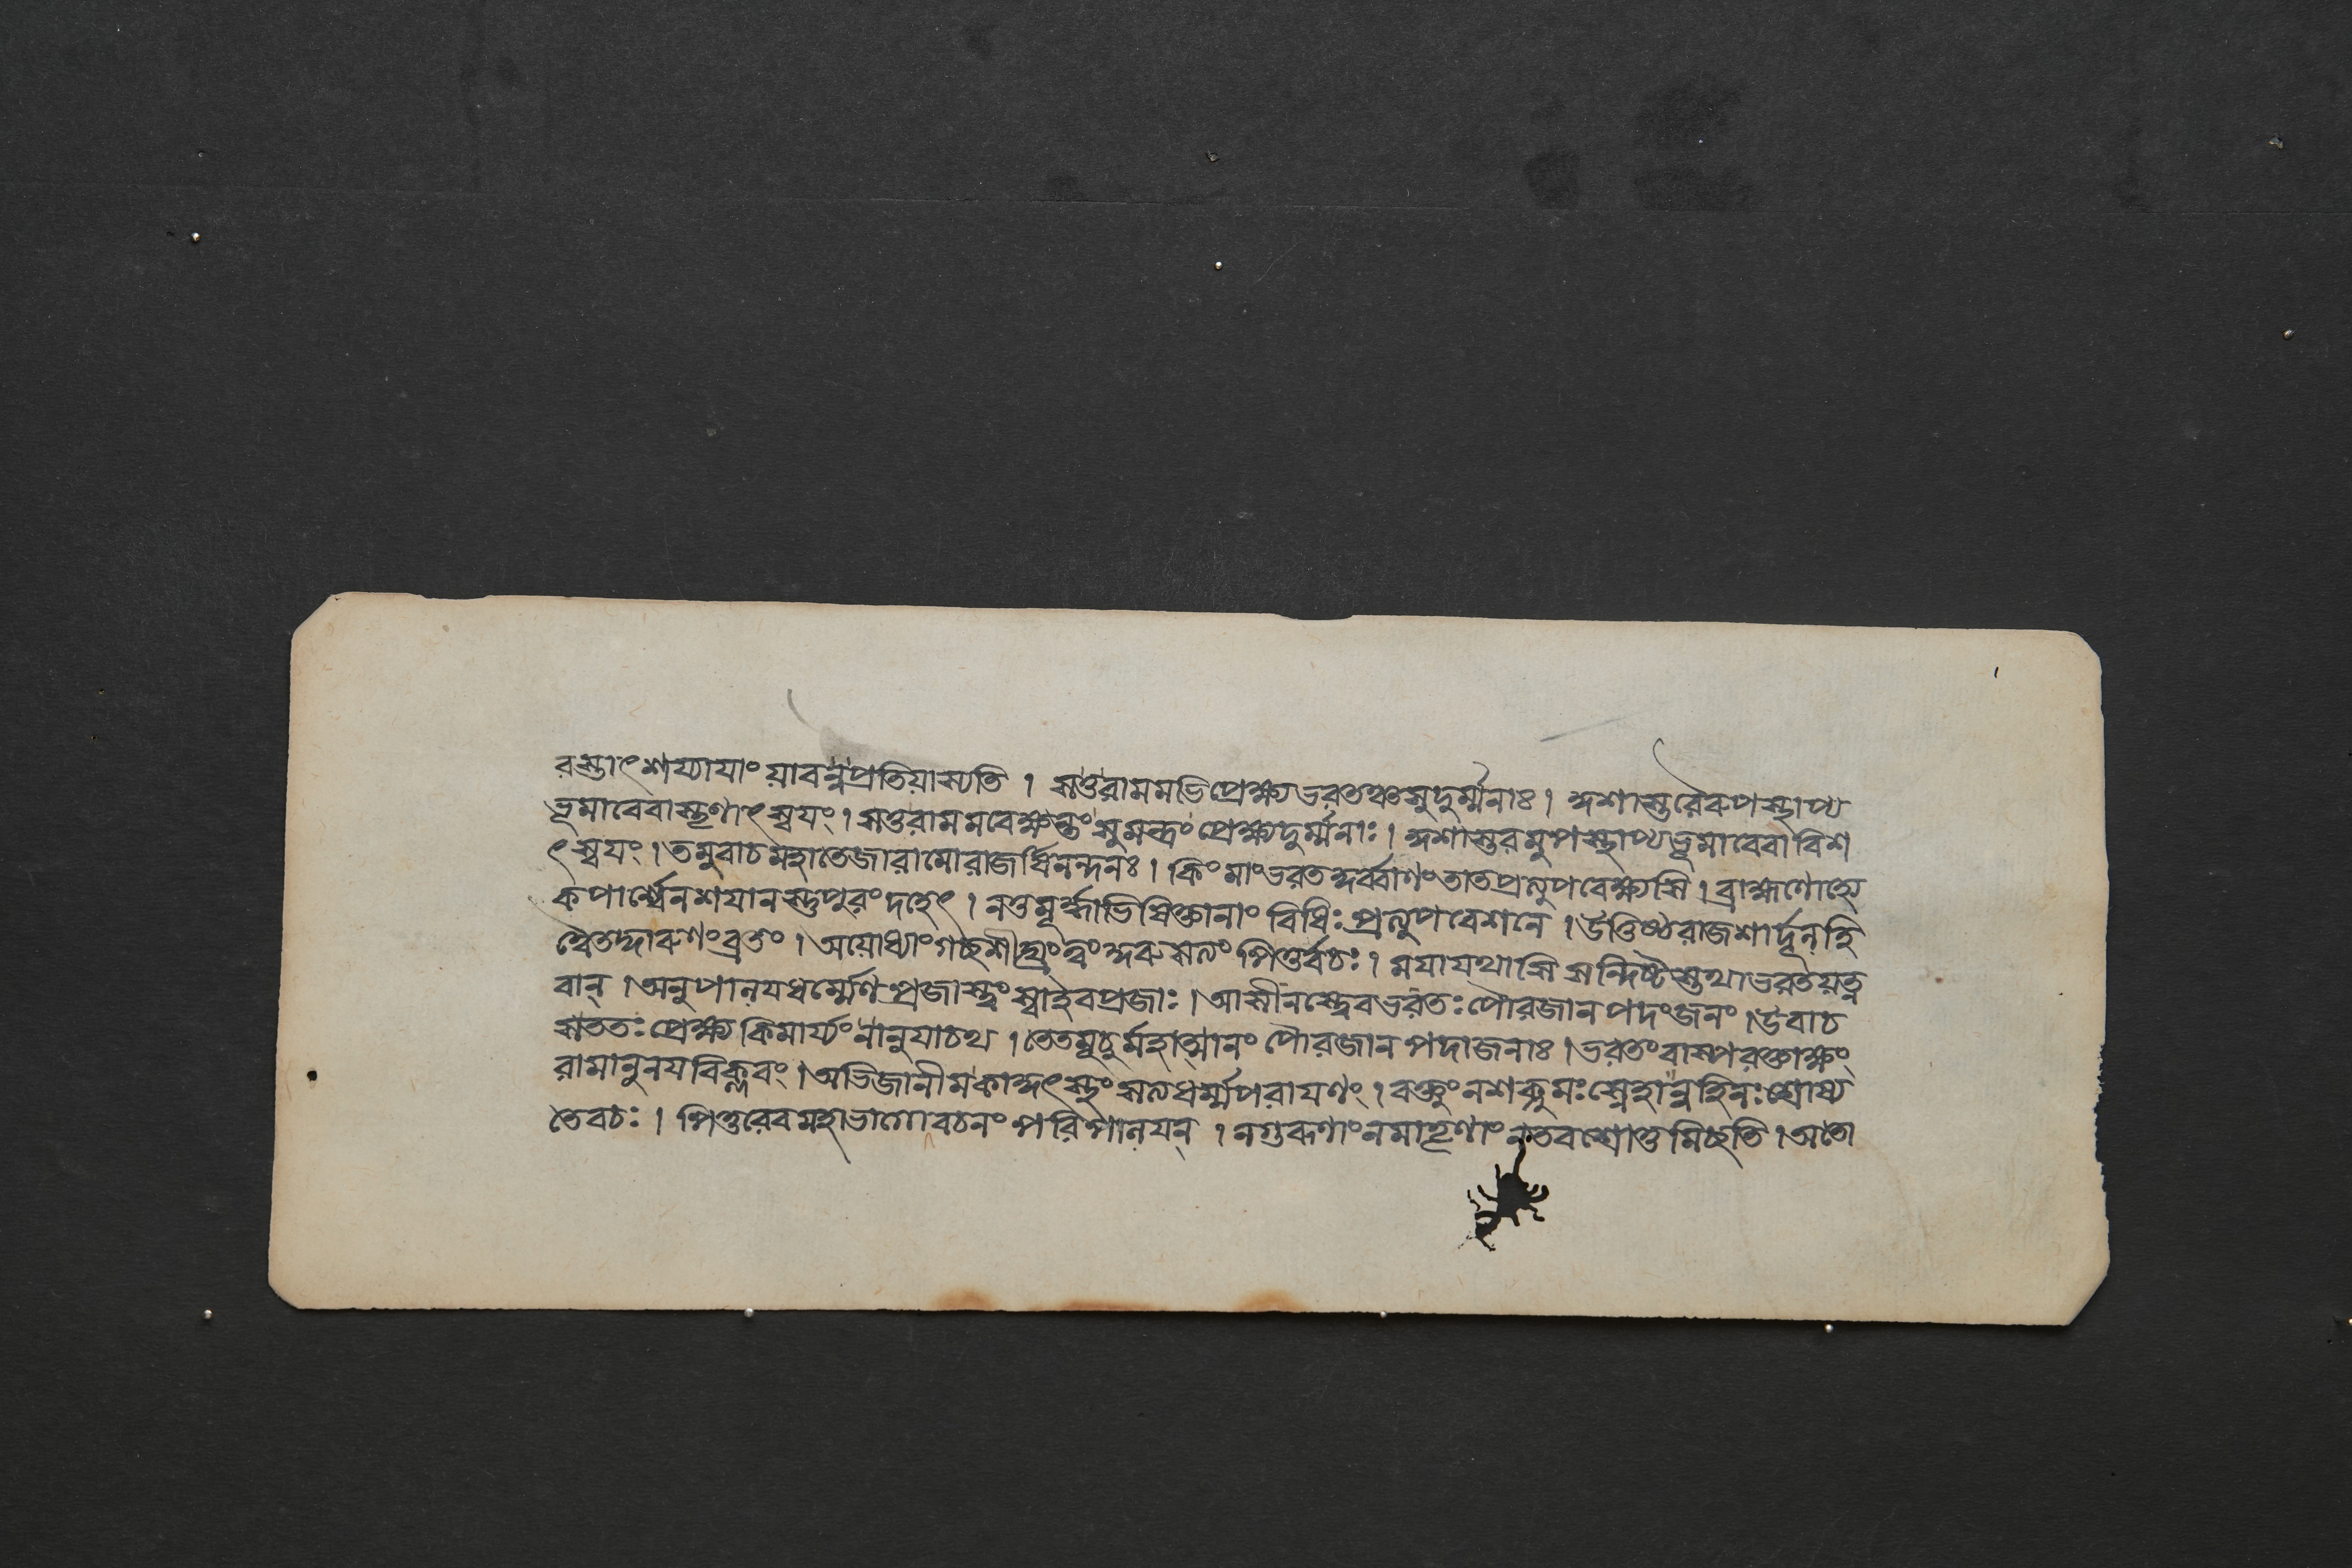 রস্তাৎশয্যাযাং যাবন্নপ্রতিযাস্যতি । সতুরামমভিপ্রেক্ষ্যভরতঞ্চসুদুর্ম্মনাঃ । কুশাস্তরৈরুপস্থাপ্য
ভূমাবেবাস্তৃণাৎ স্বযং । সতুরামমবেক্ষন্তং সুমন্ত্রং প্রেক্ষ্যদুর্ম্মনাঃ । কুশাস্তরমুপস্থাপ্যভূমাবেবাবিশ
ৎ স্বযং । তমুবাচমহাতেজারামোরাজর্ষিনন্দনঃ । কিং মাংভরতকুর্ব্বাণংতাতপ্রত্যুপবেক্ষ্যসি । ব্রাহ্মণোহ্যে
কপার্শ্বেনশযানস্তুপুরংদহেৎ । নতুমূর্দ্ধাভিষিক্তানাং বিধিঃ প্রত্যুপবেশনে । উত্তিষ্ঠরাজশার্দূলহি
ত্বৈতদ্দারুণংব্রতং । অযোধ্যাংগচ্ছশীঘ্রংত্বংকুরুসত্যংপিতুর্বচঃ । মযাযথাসিসন্দিষ্টস্তথাভরতযত্ন
বান্ । অনুপালযধর্ম্মেণপ্রজাস্ত্বংস্বাইবপ্রজাঃ । আসীনস্ত্বেবভরতঃ পৌরজানপদংজনং । উবাচ
সততঃ প্রেক্ষ্য কিমার্য্যং নানুযাচথ । তেতমূচুর্মহাত্মানং পৌরজানপদাজনাঃ । ভরতংবাষ্পরক্তাক্ষং
রামানুনযবিক্লবং । অভিজানীমকাকুৎস্থং সত্যধর্ম্মপরাযণং । বক্তুংনশক্নুমঃ স্নেহান্নহিনঃ শ্রোষ্য
তেবচঃ । পিতুরেবমহাভাগোবচনং পরিপালযন্ । নগুরূণাংনমাতৄণাংনতবশ্রোতুমিচ্ছতি । অতো